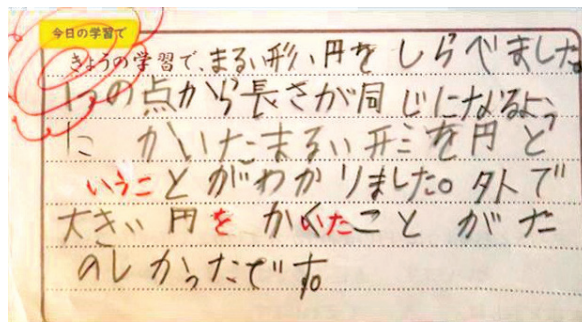 今日の学習で
きょうの学習で、まるい形、円をしらべました。
1つの点から長さが同じになるよう
に かいたまるい形を円と
いうことがわかりました。外で
大きい円をかいたことがた
のしかったです。